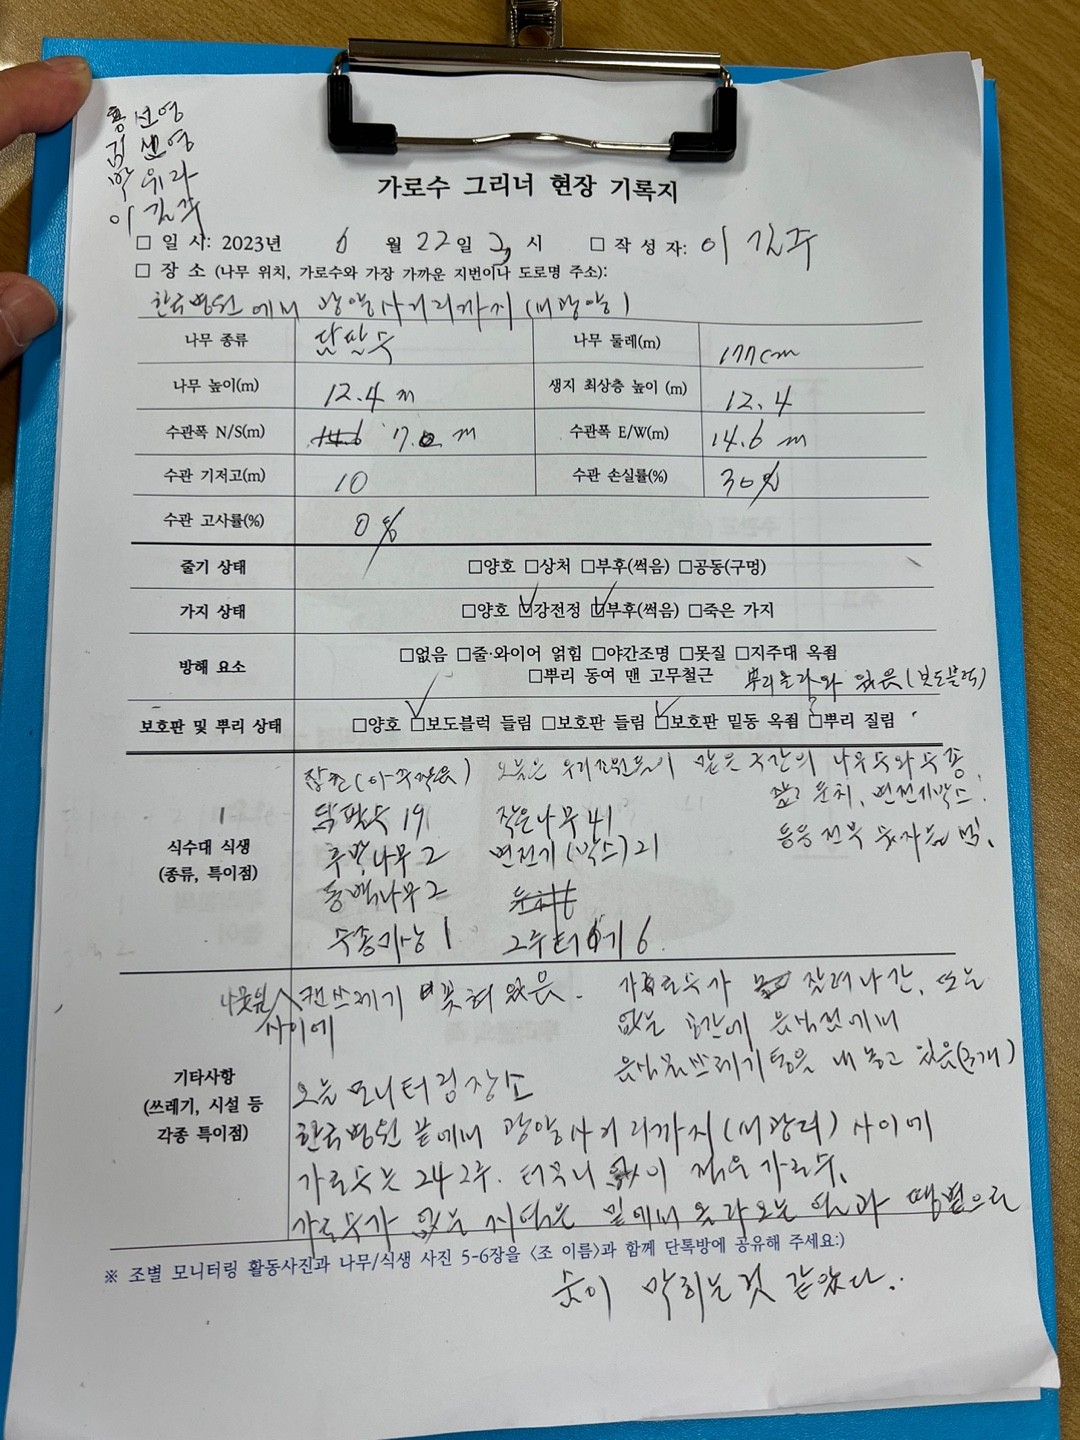 홍선영
김선영
이김주
가로수 그리너 현장 기록지
□ 일 시: 2023년 6 월 22일 2 시 □ 작성자: 이김주
□ 장 소 (나무 위치, 가로수와 가장 가까운 지번이나 도로명 주소):
한국병원에서 광양사거리까지 (서광양)
나무 종류 담팔수 나무 둘레(m) 177cm
나무 높이(m) 12.4 m 생지 최상층 높이 (m) 12.4
수관폭 N/S(m) 14.6 17.0 m 수관폭 E/W(m) 14.6 m
수관 기저고(m) 10 수관 손실률(%) 30%
수관 고사률(%) 0%
줄기 상태 □양호 □상처 □부후(썩음) □공동(구멍)
가지 상태 □양호 ☑강전정 ☑부후(썩음) □죽은 가지
방해 요소 □없음 □줄·와이어 얽힘 □야간조명 □못질 □지주대 옥죔
□뿌리 동여 맨 고무철근 뿌리올라와 있음(보도블럭)
보호판 및 뿌리 상태 □양호 ☑보도블럭 들림 □보호판 들림 ☑보호판 밑동 옥죔 □뿌리 질림
식수대 식생
(종류, 특이점)
잔디(아주작음) 오늘은 우리조원들이 맡은 구간의 나무수와 수종,
변전기박스.
담팔수 19 작은나무 41
후박나무 2 변전기(박스) 21
동백나무 2
수종가능 1 그루터기 6.
기타사항
(쓰레기, 시설 등
각종 특이점)
사이에 캔쓰레기 꽂혀 있음.
가로수가 잘려나간, 또는
없는 공간에 음식점에서
음식물쓰레기통을 내놓고 있음(3개)
오늘 모니터링장소
한국병원 끝에서 광양사거리까지 (서광려) 사이에
가로수는 24그루. 터무니없이 적은 가로수.
가로수가 없는 지역은 밑에서 올라오는 열과 땡볕으로
숨이 막히는것 같았다..
※ 조별 모니터링 활동사진과 나무/식생 사진 5-6장을 <조 이름>과 함께 단톡방에 공유해 주세요:)